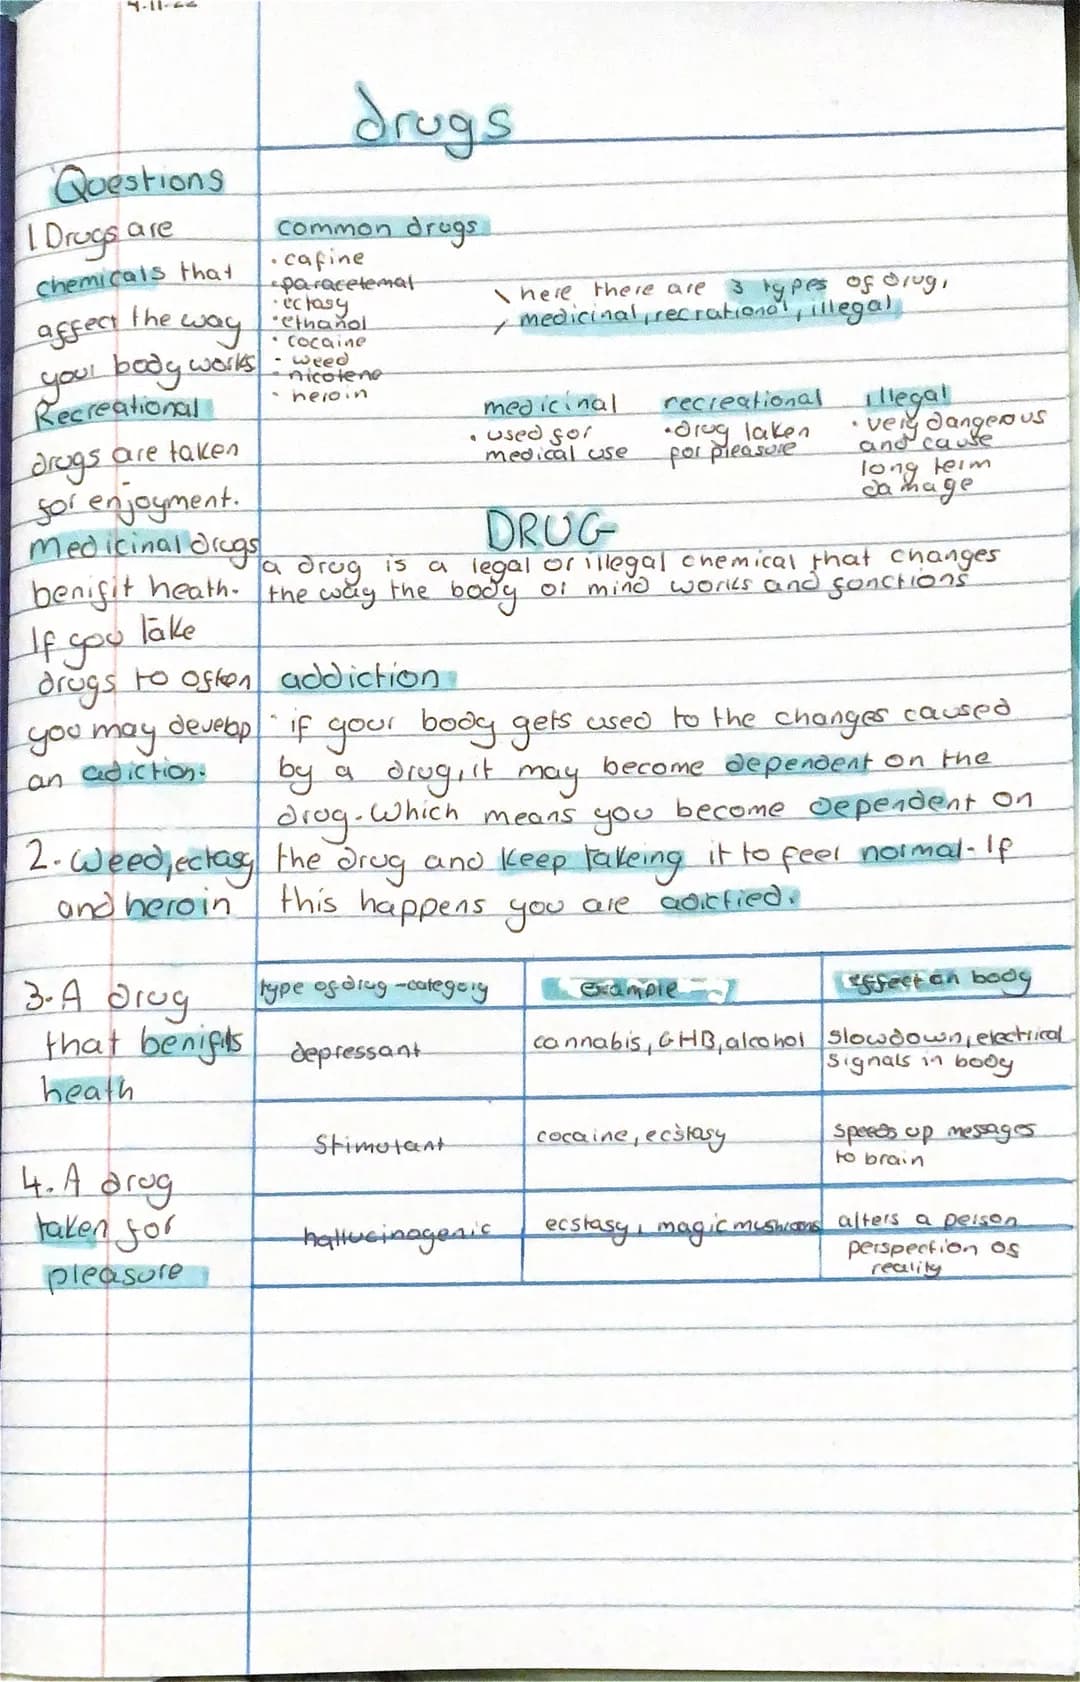 drugs
Questions
1 Drugs are
chemicals that
affect the way
your body works
Recreational
drugs are taken
for enjoyment.
medicinal drugs
benifit heath.
If you take
drugs to often
you may develop
an adiction.
2. Weed, ectasy
and heroin
3. A drug
that benifits
heath
4. A drug
taken for
pleasure
common drugs
• cafine
• paracetemal
• ectasy
• ethanol
• cocaine
- weed
- nicotene
• heroin
here there are 3 types of drug,
medicinal, recrational, illegal
medicinal
• used for
medical use
recreational
• drug taken
for pleasure
illegal
• very dangerous
and cause
long term
damage
DRUG
a drug is a legal or illegal chemical that changes
the way the body or mind works and fonctions
addiction
• if your body gets used to the changes caused
by a drug, it may become dependent on the
drug. Which means you become dependent on
the drug and keep takeing it to feel normal. If
this happens you are
type of drug - category example effect on body
depressant cannabis, GHB, alcohol slowdown, electrical
signals in body
Stimutant cocaine, ecstasy speeds up messages
to brain
hallucinogenic ecstasy, magic mushrooms alters a person
perspection of
reality